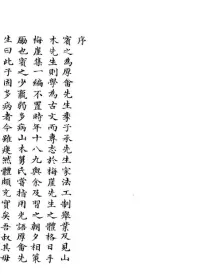 序
賓之為厚奮先生季子承先生家法工制舉業及見山
木先生則學為古文而專志於梅崖先生之體格日手
梅崖集一編不置時年十八九與余及習之朝夕相策
勵也賓之少羸弱多病山木舅氏嘗指用光語厚奮先
生曰此子固多病者今雖瘦然體頗充實矣吾叔其毋